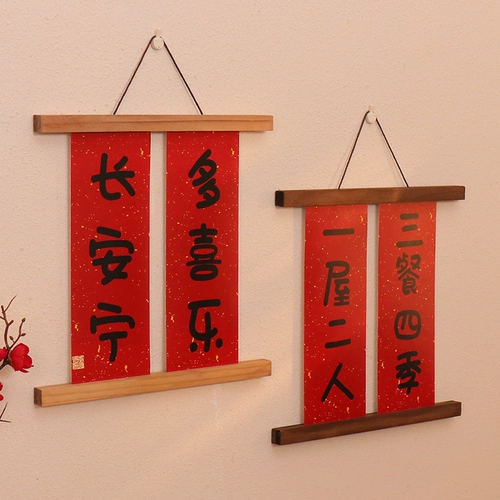 多喜乐
长安宁
三餐四季
一屋二人